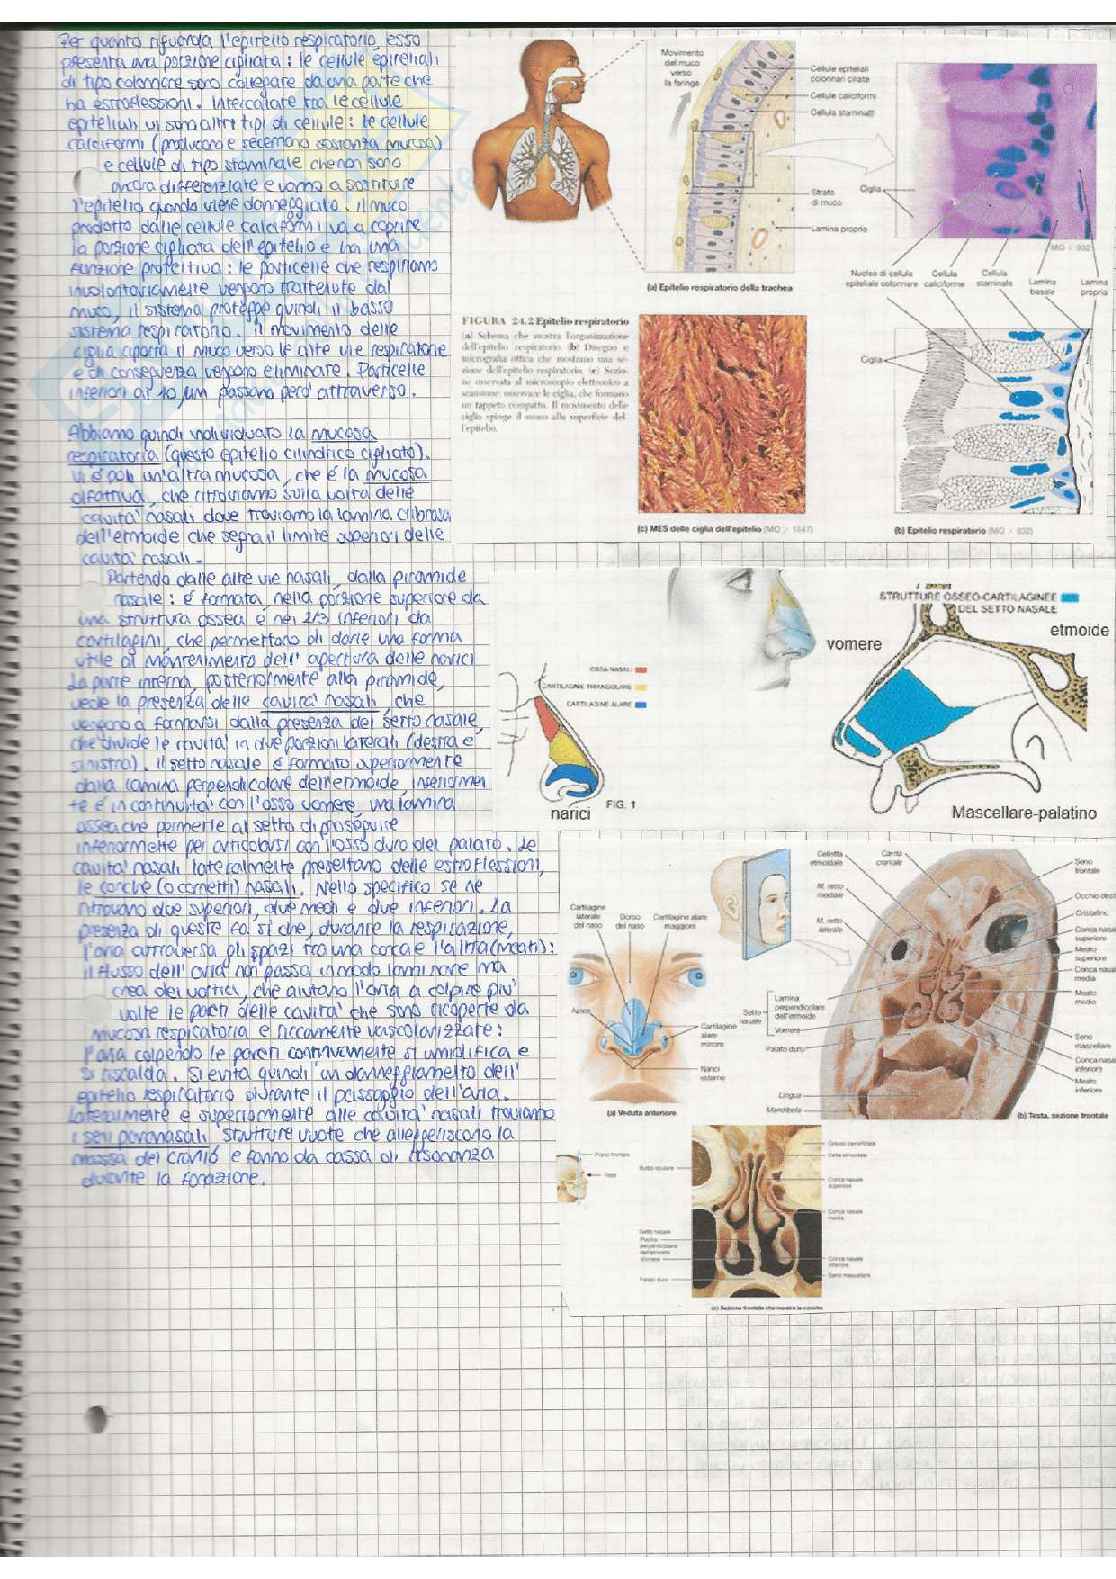 Per quanto riguarda l'epitelio respiratorio, esso
presenta una porzione cigliata: le cellule epiteliali
di tipo colonnare sono collegate da una parte che
ha estroflessioni. Intercalate tra le cellule
epiteliali vi sono altri tipi di cellule: le cellule
calciformi (producono e secernono sostanza mucosa)
e cellule di tipo staminale che non sono
ancora differenziate e vanno a sostituire
l'epitelio quando viene danneggiato. Il muco
prodotto dalle cellule calciformi va a coprire
la porzione cigliata dell'epitelio e ha una
funzione protettiva: le particelle che respiriamo
involontariamente vengono trattenute dal
muco, il sistema protegge quindi il basso
sistema respiratorio. Il movimento delle
ciglia riporta il muco verso le alte vie respiratorie
e di conseguenza vengono eliminate. Particelle
inferiori ai 10 µm passano però attraverso.
Abbiamo quindi individuato la mucosa
respiratoria (questo epitelio cilindrico cigliato).
Vi è poi un'altra mucosa, che è la mucosa
olfattiva, che ritroviamo sulla volta delle
cavità nasali dove troviamo la lamina cribrosa
dell'etmoide che segna il limite superiore delle
cavità nasali.
Partendo dalle alte vie nasali, dalla piramide
nasale: è formata nella porzione superiore da
una struttura ossea e nei 2/3 inferiori da
cartilagini, che permettono di darle una forma
utile al mantenimento dell'apertura delle narici
La parte interna, posteriormente alla piramide,
vede la presenza delle cavità nasali, che
vengono a formarsi dalla presenza del setto nasale,
che divide le cavità in due porzioni laterali (destra e
sinistra). Il setto nasale è formato superiormente
dalla lamina perpendicolare dell'etmoide, inferiormen
te è in continuità con l'osso vomere, una lamina
ossea che permette al setto di proseguire
inferiormente per articolarsi con l'osso duro del palato. Le
cavità nasali lateralmente presentano delle estroflessioni,
le conche (o cornetti) nasali. Nello specifico se ne
ritrovano due superiori, due medi e due inferiori. La
presenza di queste fa sì che, durante la respirazione,
l'aria attraversa gli spazi tra una conca e l'altra (meati):
il flusso dell'aria non passa in modo laminare ma
crea dei vortici, che aiutano l'aria a colpire più
volte le pareti delle cavità che sono ricoperte da
mucosa respiratoria e riccamente vascolarizzate:
l'aria colpendo le pareti continuamente si umidifica e
si riscalda. Si evita quindi un danneggiamento dell'
epitelio respiratorio durante il passaggio dell'aria.
Lateralmente e superiormente alle cavità nasali troviamo
i seni paranasali, strutture vuote che alleggeriscono la
massa del cranio e fanno da cassa di risonanza
durante la fonazione.
Movimento
del muco
verso
la faringe
Cellule epiteliali
colonnari ciliate
Cellule calciformi
Cellula staminale
Strato
di muco
Lamina propria
(a) Epitelio respiratorio della trachea
Ciglia
MO × 932
Nucleo di cellula
epiteliale colonnare
Cellula
calciforme
Cellula
staminale
Lamina
basale
Lamina
propria
FIGURA 24.2 Epitelio respiratorio
(a) Schema che mostra l'organizzazione
dell'epitelio respiratorio. (b) Disegno e
micrografia ottica che mostrano una se-
zione dell'epitelio respiratorio. (c) Sezio-
ne osservata al microscopio elettronico a
scansione: osservare le ciglia, che formano
un tappeto compatto. Il movimento delle
ciglia spinge il muco alla superficie del-
l'epitelio.
(c) MES delle ciglia dell'epitelio (MO × 1647)
Ciglia
(b) Epitelio respiratorio (MO × 932)
OSSA NASALI
CARTILAGINE TRIANGOLARE
CARTILAGINE ALARE
narici
FIG. 1
STRUTTURE OSSEO-CARTILAGINEE
DEL SETTO NASALE
vomere
etmoide
Mascellare-palatino
Cartilagine
laterale
del naso
Dorso
del naso
Cartilagine alare
maggiore
Apice
Cartilagine
alare
minore
Narici
esterne
(a) Veduta anteriore
Celletta
etmoidale
Cavità
craniale
M. retto
mediale
M. retto
laterale
Setto
nasale
Lamina
perpendicolare
dell'etmoide
Vomere
Palato duro
Lingua
Mandibola
Seno
frontale
Occhio dest
Cristallino
Conca nasa
superiore
Meato
superiore
Conca nasa
media
Meato
medio
Seno
mascellare
Conca nasa
inferiore
Meato
inferiore
(b) Testa, sezione frontale
Piano frontale
Naso
Bulbo oculare
Setto nasale
Palato duro
Conca nasale
superiore
Conca nasale
media
Conca nasale
inferiore
Seno mascellare